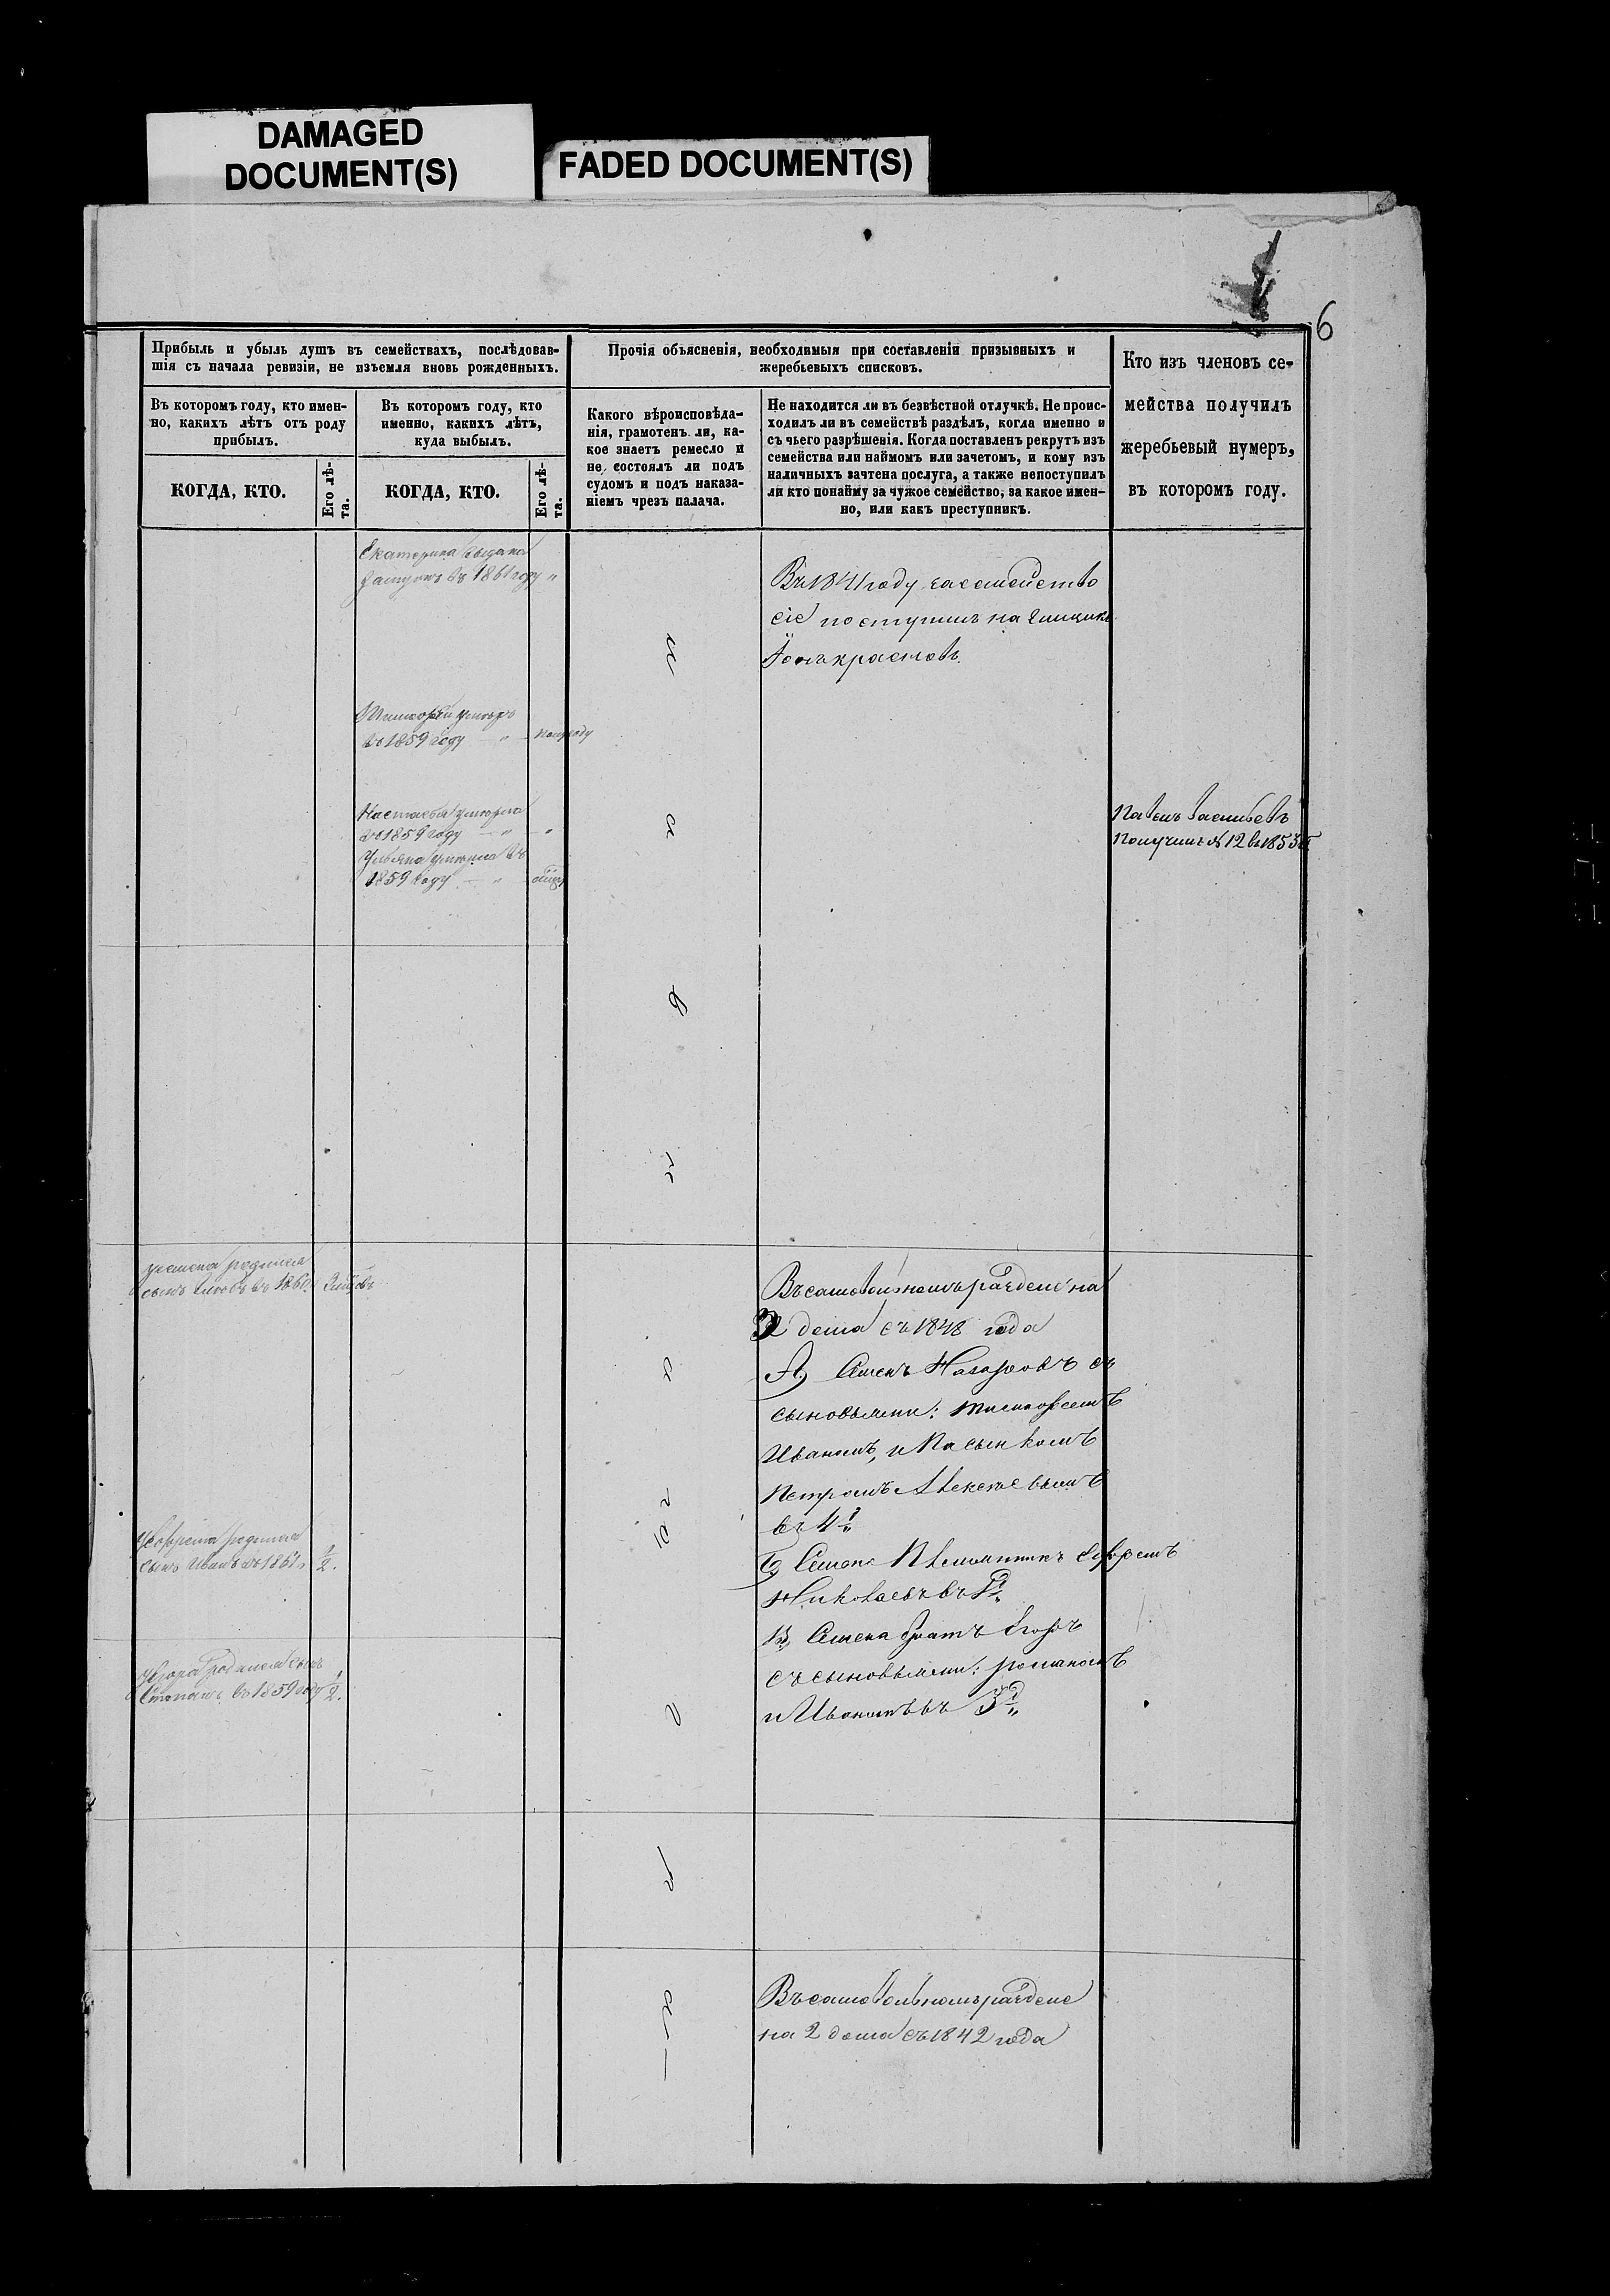 DAMAGED
DOCUMENT(S)
FADED DOCUMENT(S)
6
Прибыль и убыль душъ въ семействахъ, послѣдовав-
шія съ начала ревизіи, не изъемля вновь рожденныхъ.
Въ которомъ году, кто имен-
но, какихъ лѣтъ отъ роду
прибылъ.
КОГДА, КТО.
Его лѣ-
та.
Въ которомъ году, кто
именно, какихъ лѣтъ,
куда выбылъ.
КОГДА, КТО.
Его лѣ-
та.
Прочія объясненія, необходимыя при составленіи призывныхъ и
жеребьевыхъ списковъ.
Какого вѣроисповѣда-
нія, грамотенъ ли, ка-
кое знаетъ ремесло и
не состоялъ ли подъ
судомъ и подъ наказа-
ніемъ чрезъ палача.
Не находится ли въ безвѣстной отлучкѣ. Не проис-
ходилъ ли въ семействѣ раздѣлъ, когда именно и
съ чьего разрѣшенія. Когда поставленъ рекрутъ изъ
семейства или наймомъ или зачетомъ, и кому изъ
наличныхъ зачтена послуга, а также непоступилъ
ли кто понайму за чужое семейство, за какое имен-
но, или какъ преступникъ.
Кто изъ членовъ се-
мейства получилъ
жеребьевый нумеръ,
въ которомъ году.
Екатерина выдана
замужъ въ 1861 году "
Тимофей умеръ
въ 1859 году — " — полугоду
Настасья умерла
въ 1859 году — " — "
Ульяна умерла въ
1859 году — " —
Въ 1841 году за семейство
сіе поступилъ на
Павелъ Васильевъ
Получилъ № 12 въ 1853
родился
сынъ въ 1860
Въ самовольномъ разделе на
3 дома съ 1848 года
А, Семенъ Назаровъ съ
сыновьями: Тимофеемъ
Иваномъ, и Пасынкомъ
Петромъ Алексеевымъ
въ 4
Б, Семена Племянникъ Ефремъ
Николаевъ въ
В, Семена братъ Егоръ
съ сыновьями: романомъ
и Иваномъ въ 3
У Ефрема родился
сынъ Иванъ въ 1861 1/2.
У Егора родился сынъ
Степанъ въ 1859 году 1/2.
Въ самовольномъ разделе
на 2 дома съ 1842 года